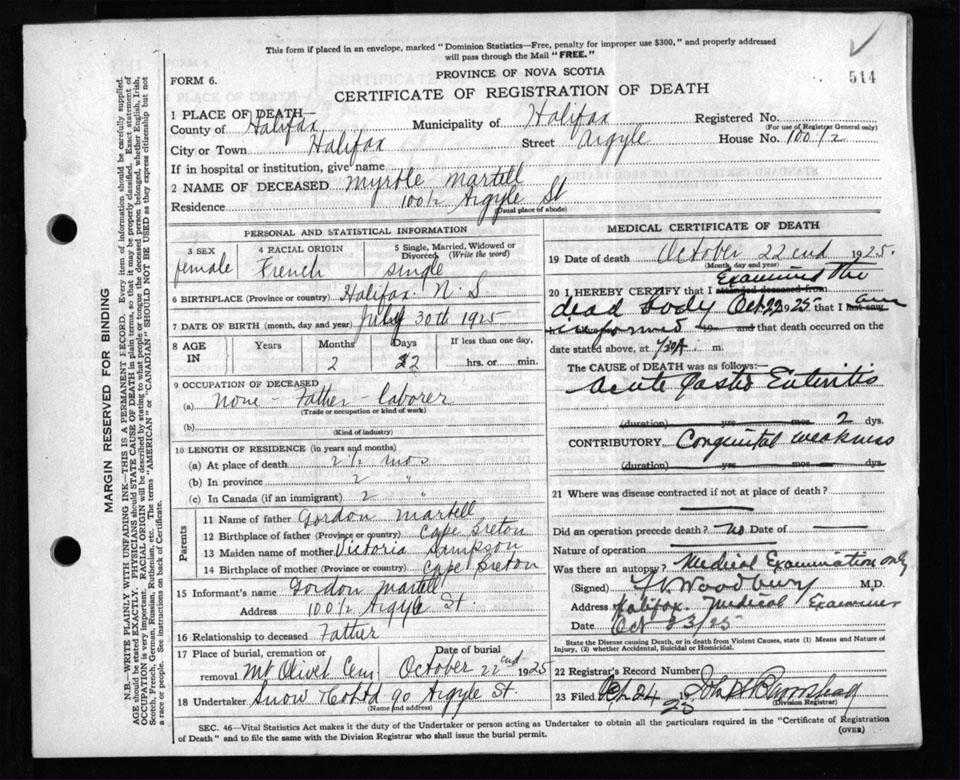 This form if placed in an envelope, marked "Dominion Statistics—Free, penalty for improper use $300," and properly addressed
will pass through the Mail "FREE."
514
FORM 6.
PROVINCE OF NOVA SCOTIA
CERTIFICATE OF REGISTRATION OF DEATH
1 PLACE OF DEATH—
County of Halifax Municipality of Halifax Registered No.
(For use of Registrar General only)
City or Town Halifax Street Argyle House No. 100 1/2
If in hospital or institution, give name
2 NAME OF DECEASED Myrtle Martell
Residence 100 1/2 Argyle St
(Usual place of abode)
PERSONAL AND STATISTICAL INFORMATION
3 SEX female
4 RACIAL ORIGIN French
5 Single, Married, Widowed or Divorced (Write the word) single
6 BIRTHPLACE (Province or country) Halifax N.S
7 DATE OF BIRTH (month, day and year) July 30th 1925
8 AGE IN Years Months Days If less than one day,
2 22 hrs. or min.
9 OCCUPATION OF DECEASED
(a) none - Father - laborer
(Trade or occupation or kind of work)
(b)
(Kind of industry)
10 LENGTH OF RESIDENCE (in years and months)
(a) At place of death 2 1/2 mos
(b) In province 2 "
(c) In Canada (if an immigrant) 2 "
Parents
11 Name of father Gordon Martell
12 Birthplace of father (Province or country) Cape Breton
13 Maiden name of mother Victoria Sampson
14 Birthplace of mother (Province or country) Cape Breton
15 Informant's name Gordon Martell
Address 100 1/2 Argyle St.
16 Relationship to deceased Father
17 Place of burial, cremation or removal Mt Olivet Cem
Date of burial October 22nd 1925
18 Undertaker Snow & Co Ltd 90 Argyle St.
(Name and address)
MEDICAL CERTIFICATE OF DEATH
19 Date of death October 22nd 1925.
(Month, day and year)
20 I HEREBY CERTIFY that I attended deceased from Examined the
dead body Oct 22 25 that I last saw am
informed 19 and that death occurred on the
date stated above, at 7.30 A. m.
The CAUSE OF DEATH was as follows:—
Acute Gastro Enteritis
(duration) yrs mos 2 dys.
CONTRIBUTORY Congenital weakness
(duration) yrs mos dys.
21 Where was disease contracted if not at place of death?
Did an operation precede death? No Date of
Nature of operation
Was there an autopsy? Medical Examination only
(Signed) Woodbury M.D.
Address Halifax Medical Examiner
Date Oct 23/25
State the Disease causing Death, or in death from Violent Causes, state (1) Means and Nature of
Injury, (2) whether Accidental, Suicidal or Homicidal.
22 Registrar's Record Number
23 Filed 24 1925 John
(Division Registrar)
SEC. 46—Vital Statistics Act makes it the duty of the Undertaker or person acting as Undertaker to obtain all the particulars required in the "Certificate of Registration
of Death" and to file the same with the Division Registrar who shall issue the burial permit.
(OVER)
MARGIN RESERVED FOR BINDING
N.B.—WRITE PLAINLY WITH UNFADING INK—THIS IS A PERMANENT RECORD. Every item of information should be carefully supplied.
AGE should be stated EXACTLY. PHYSICIANS should STATE CAUSE OF DEATH in plain terms, so that it may be properly classified. Exact statement of
OCCUPATION is very important. RACIAL ORIGIN will be described by stating to what people or tongue the deceased person belonged, whether English, Irish,
Scotch, French, German, Russian, Ruthenian, etc. The terms "AMERICAN" or "CANADIAN" SHOULD NOT BE USED as they express citizenship but not
a race or people. See instructions on back of Certificate.